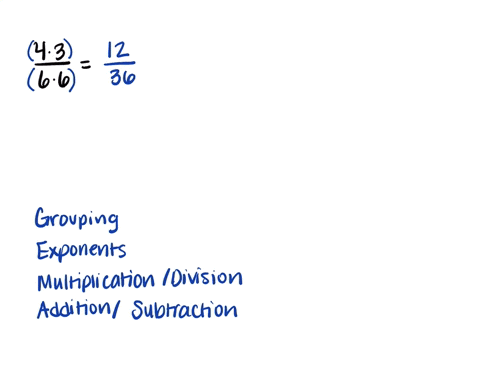 (4·3)/(6·6) = 12/36
Grouping
Exponents
Multiplication /Division
Addition/ Subtraction